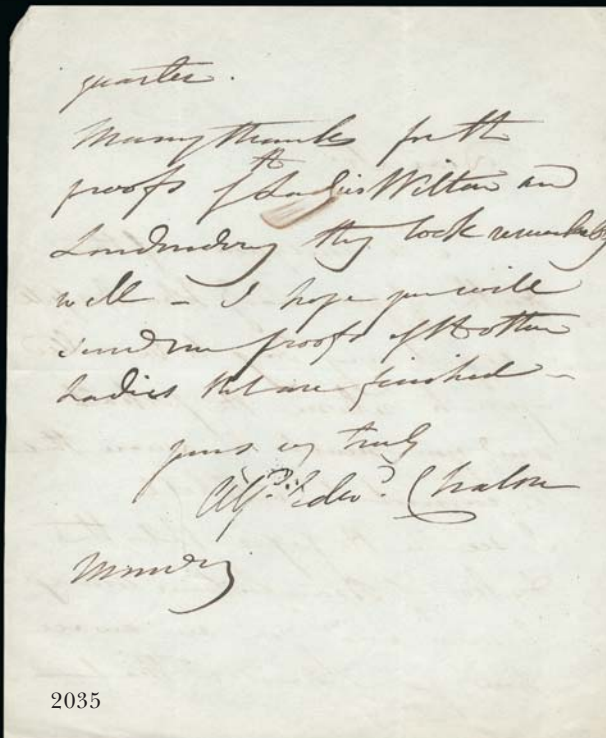 quarter.
Many thanks for the
the
proofs of Ladies Wilton and
Londonderry they look remarkably
well – I hope you will
send me proofs of the other
Ladies that are finished –
yours very truly
Alf.d Edw.d Chalon
Monday
2035